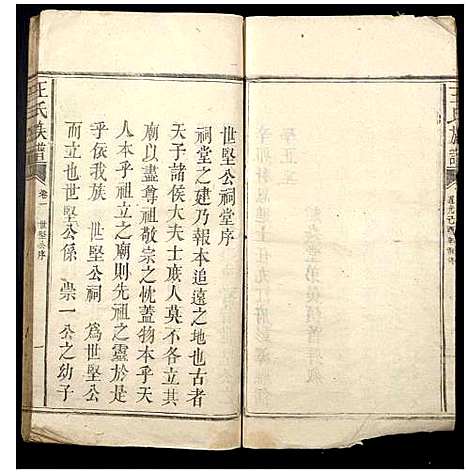 世堅公祠堂序
祠堂之建乃報本追遠之地也古者
天子諸侯大夫士庶人莫不各立其
廟以盡尊祖敬宗之忱蓋物本乎天
人本乎祖立之廟則先祖之靈於是
乎依我族 世堅公祠 為世堅公
而立也世堅公係 崇一公之幼子
王氏族譜
卷一
世堅公序
一
王氏族譜